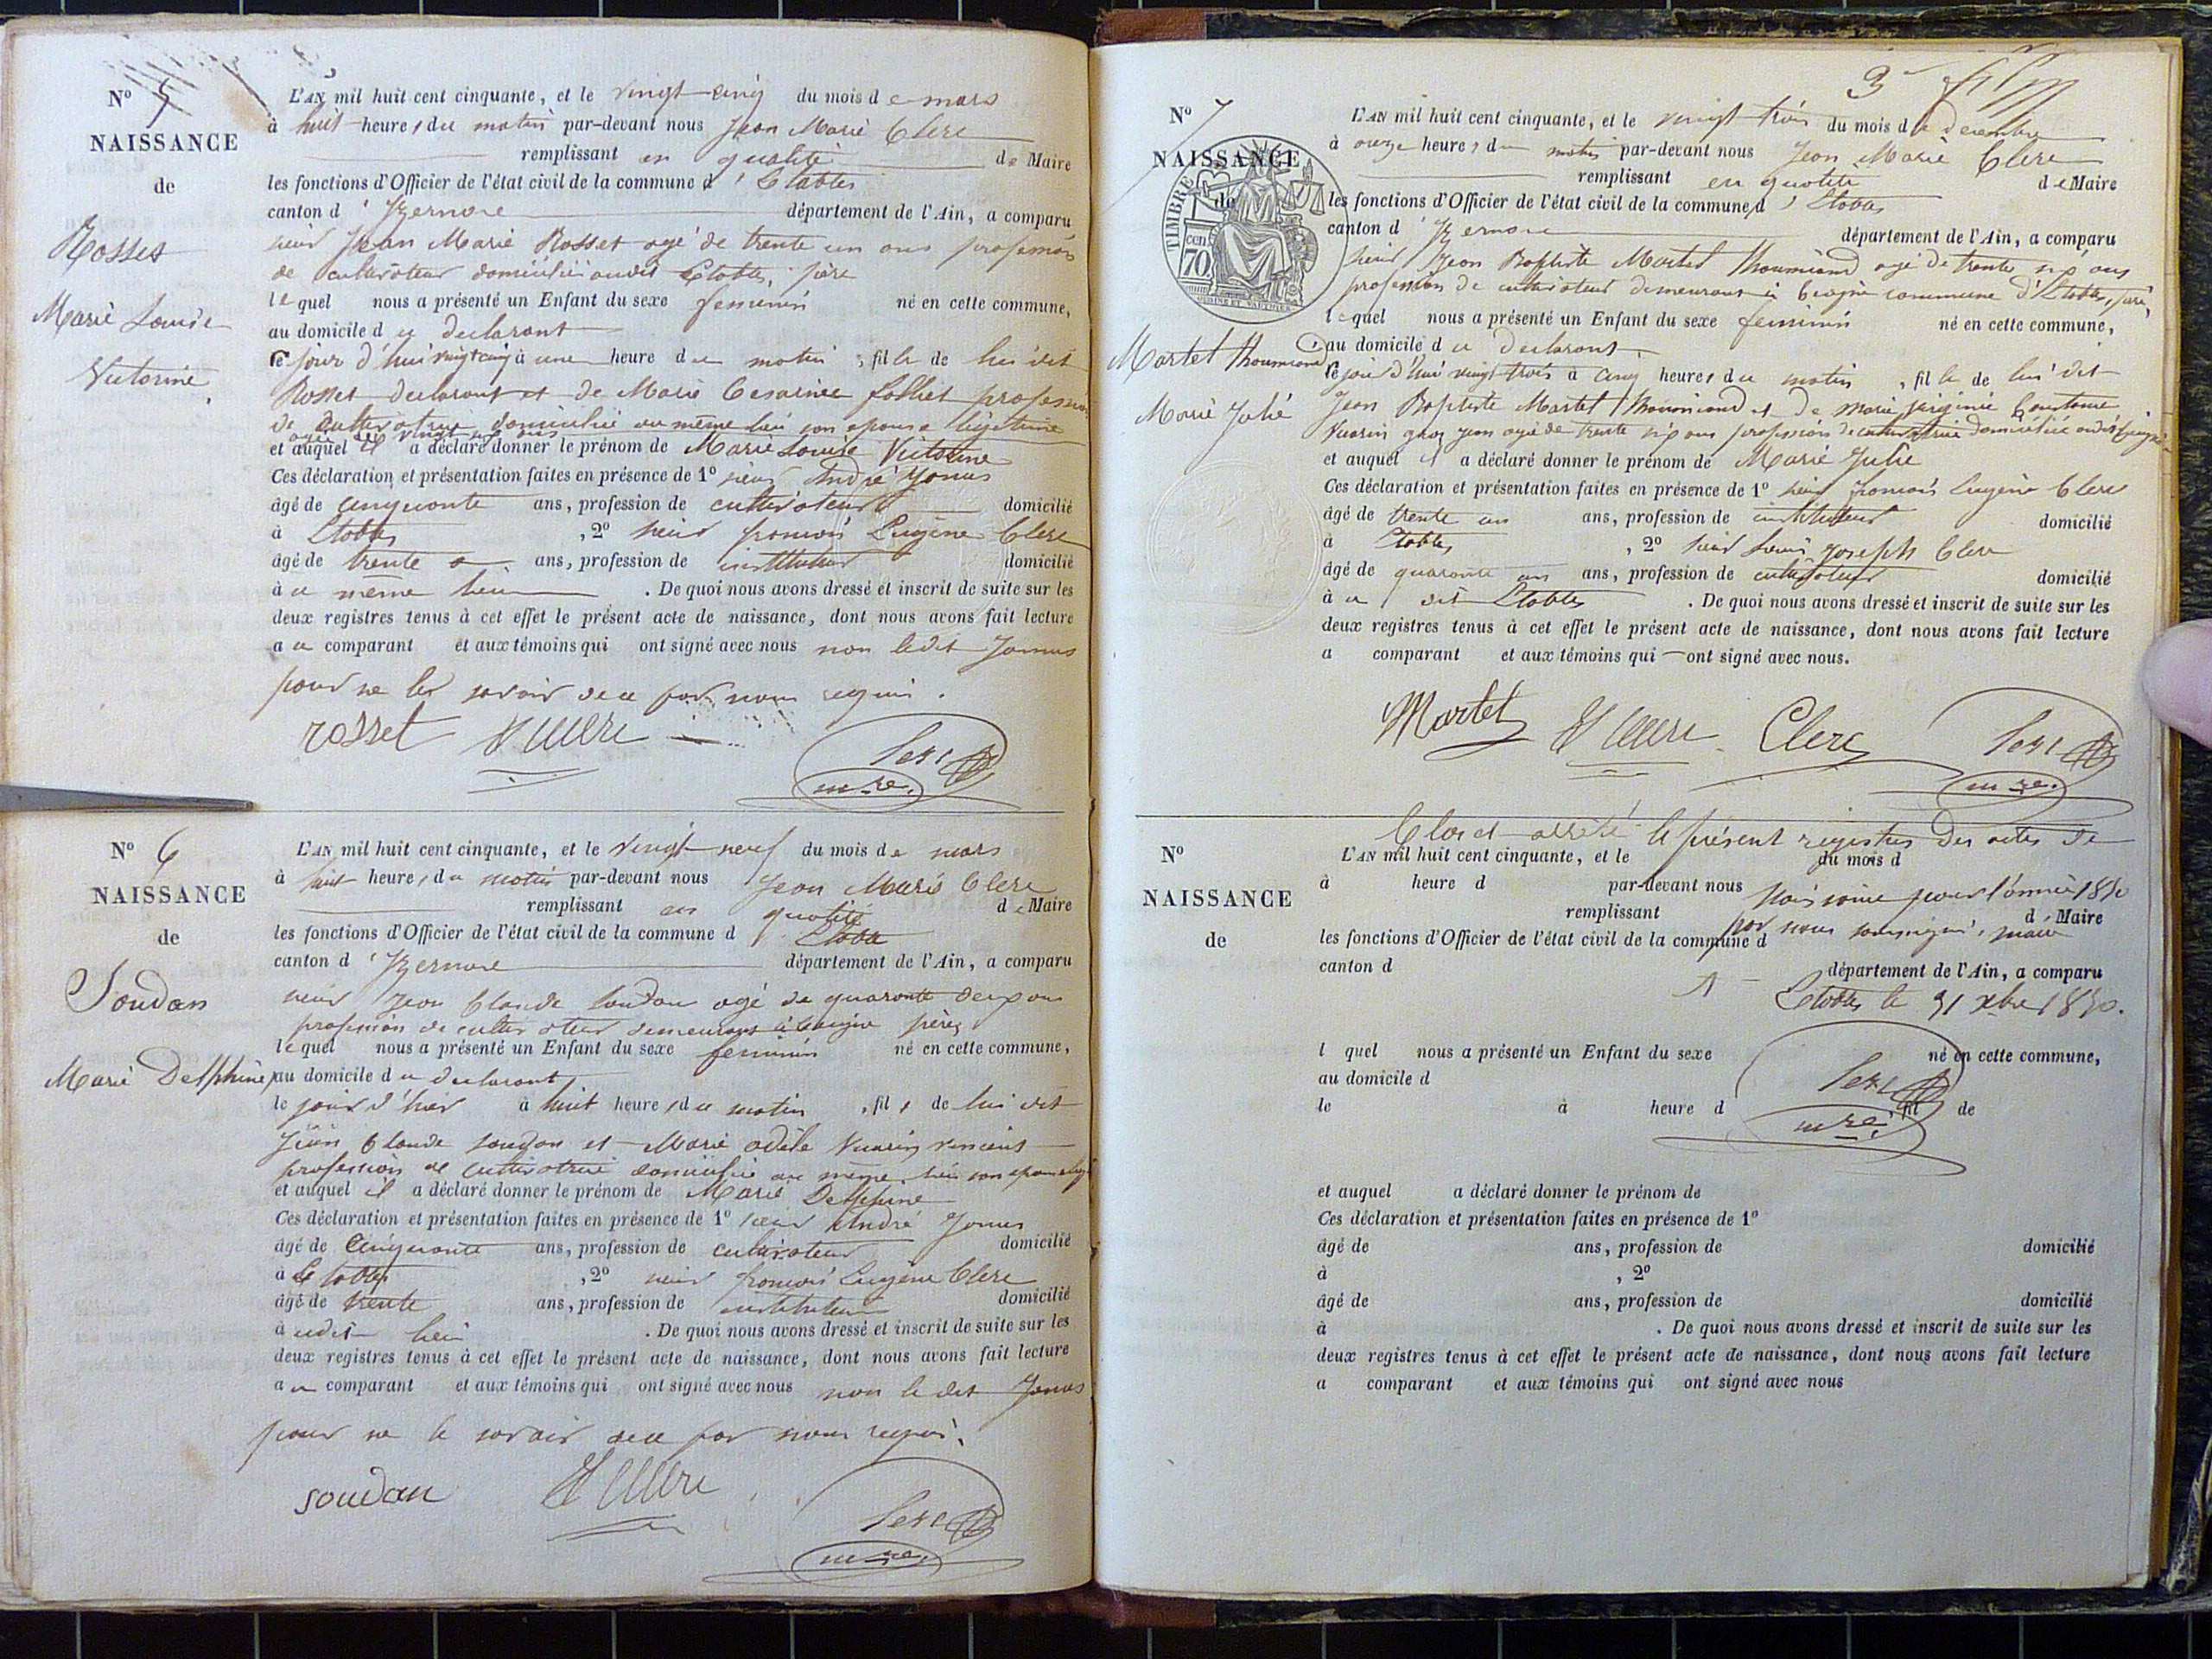 N° 5
NAISSANCE
de
Rosset
Marie Louise
Victorine
L'AN mil huit cent cinquante, et le vingt cinq du mois de mars
à huit heures du matin par-devant nous Jean Marie Clerc
remplissant en qualité de Maire
les fonctions d'Officier de l'état civil de la commune d'Etables
canton d'Izernore département de l'Ain, a comparu
sieur Jean Marie Rosset agé de trente un ans profession
de cultivateur domicilié audit Etables, père
lequel nous a présenté un Enfant du sexe feminin né en cette commune,
au domicile du declarant
ce jour d'hui vingt cinq à une heure du matin, fille de lui dit
Rosset declarant et de Marie Cesarine folliet profession
de cultivatrice domiciliée au même lieu son epouse legitime
et auquel il a déclaré donner le prénom de Marie Louise Victorine
Ces déclaration et présentation faites en présence de 1° sieur André Jonus
âgé de cinquante ans, profession de cultivateur domicilié
à Etables, 2° sieur françois Eugène Clerc
âgé de trente ans, profession de instituteur domicilié
à ce même lieu. De quoi nous avons dressé et inscrit de suite sur les
deux registres tenus à cet effet le présent acte de naissance, dont nous avons fait lecture
au comparant et aux témoins qui ont signé avec nous non ledit Jonus
pour ne le savoir de ce par nous requis.
rosset Clerc
mre
N° 6
NAISSANCE
de
Soudan
Marie Delphine
L'AN mil huit cent cinquante, et le vingt neuf du mois de mars
à huit heures du matin par-devant nous Jean Marie Clerc
remplissant en qualité de Maire
les fonctions d'Officier de l'état civil de la commune d'Etable
canton d'Izernore département de l'Ain, a comparu
sieur Jean Claude Soudan agé de quarante deux ans
profession de cultivateur demeurant à père,
lequel nous a présenté un Enfant du sexe feminin né en cette commune,
au domicile du declarant
le jour d'hier à huit heures du matin, fil de lui dit
Jean Claude soudan et Marie adèle Vuarin
profession de cultivatrice domiciliée au même lieu son epouse
et auquel il a déclaré donner le prénom de Marie Delphine
Ces déclaration et présentation faites en présence de 1° sieur André Jonus
âgé de Cinquante ans, profession de cultivateur domicilié
à Etables, 2° sieur françois Eugène Clerc
âgé de trente ans, profession de instituteur domicilié
à udit lieu. De quoi nous avons dressé et inscrit de suite sur les
deux registres tenus à cet effet le présent acte de naissance, dont nous avons fait lecture
au comparant et aux témoins qui ont signé avec nous non ledit Jonus
pour ne le savoir de ce par nous requis.
soudan Clerc
mre
3
N° 7
NAISSANCE
de
TIMBRE
cen
70
Martet Thoumiand
Marie Julie
L'AN mil huit cent cinquante, et le vingt trois du mois de decembre
à onze heures du matin par-devant nous Jean Marie Clerc
remplissant en qualité de Maire
les fonctions d'Officier de l'état civil de la commune d'Etables
canton d'Izernore département de l'Ain, a comparu
sieur Jean Baptiste Martet Thoumiand agé de trente six ans
profession de cultivateur demeurant à commune d'Etables, père,
lequel nous a présenté un Enfant du sexe feminin né en cette commune,
au domicile du declarant
ce jour d'hui vingt trois à cinq heures du matin, fille de lui dit
Jean Baptiste Martet Thoumiand et de Marie
Vuarin agée de trente six ans profession de cultivatrice domiciliée
et auquel il a déclaré donner le prénom de Marie Julie
Ces déclaration et présentation faites en présence de 1° sieur françois Eugène Clerc
âgé de trente un ans, profession de instituteur domicilié
à Etables, 2° sieur Louis Joseph Clerc
âgé de quarante un ans, profession de cultivateur domicilié
à u dit Etables. De quoi nous avons dressé et inscrit de suite sur les
deux registres tenus à cet effet le présent acte de naissance, dont nous avons fait lecture
a comparant et aux témoins qui ont signé avec nous.
Martet Clerc Clerc
mre
Clos et arrêté le présent registre des actes de
N°
NAISSANCE
de
L'AN mil huit cent cinquante, et le du mois d
à heure d par-devant nous
naissance pour l'année 1850
remplissant d Maire
par nous soussigné, maire
les fonctions d'Officier de l'état civil de la commune d
canton d département de l'Ain, a comparu
A Etables le 31 xbre 1850.
l quel nous a présenté un Enfant du sexe né en cette commune,
au domicile d
le à heure d fil de
mre
et auquel a déclaré donner le prénom de
Ces déclaration et présentation faites en présence de 1°
âgé de ans, profession de domicilié
à , 2°
âgé de ans, profession de domicilié
à . De quoi nous avons dressé et inscrit de suite sur les
deux registres tenus à cet effet le présent acte de naissance, dont nous avons fait lecture
a comparant et aux témoins qui ont signé avec nous